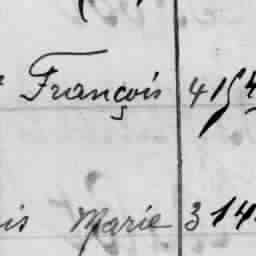 François 4 15 4
is Marie 3 14